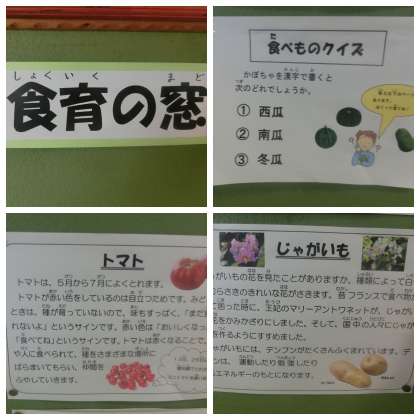 しょくいく　まど
食育の窓
食べものクイズ
かぼちゃを漢字で書くと
次のどれでしょうか。
① 西瓜
② 南瓜
③ 冬瓜
トマト
トマトは、5月から7月によくとれます。
トマトが赤い色をしているのは目立つためです。みど
ときは、種が育っていないので、味もすっぱく、「まだ
れないよ」というサインです。赤い色は「おいしくなった
「食べてね」というサインです。トマトは赤くなることで、
や人に食べられて、種をさまざまな場所に
ばらまいてもらい、仲間を
ふやしていきます。
じゃがいも
がいもの花を見たことがありますか。種類によって白
むらさきのきれいな花がさきます。昔フランスで食べ物
に困った時に、王妃のマリーアントワネットが、じゃが
花をかみかざりにしました。そして、国中の人々にじゃが
を作るようにすすめました。
ゃがいもには、デンプンがたくさんふくまれています。デ
ンは、運動したり勉強したり
エネルギーのもとになります。